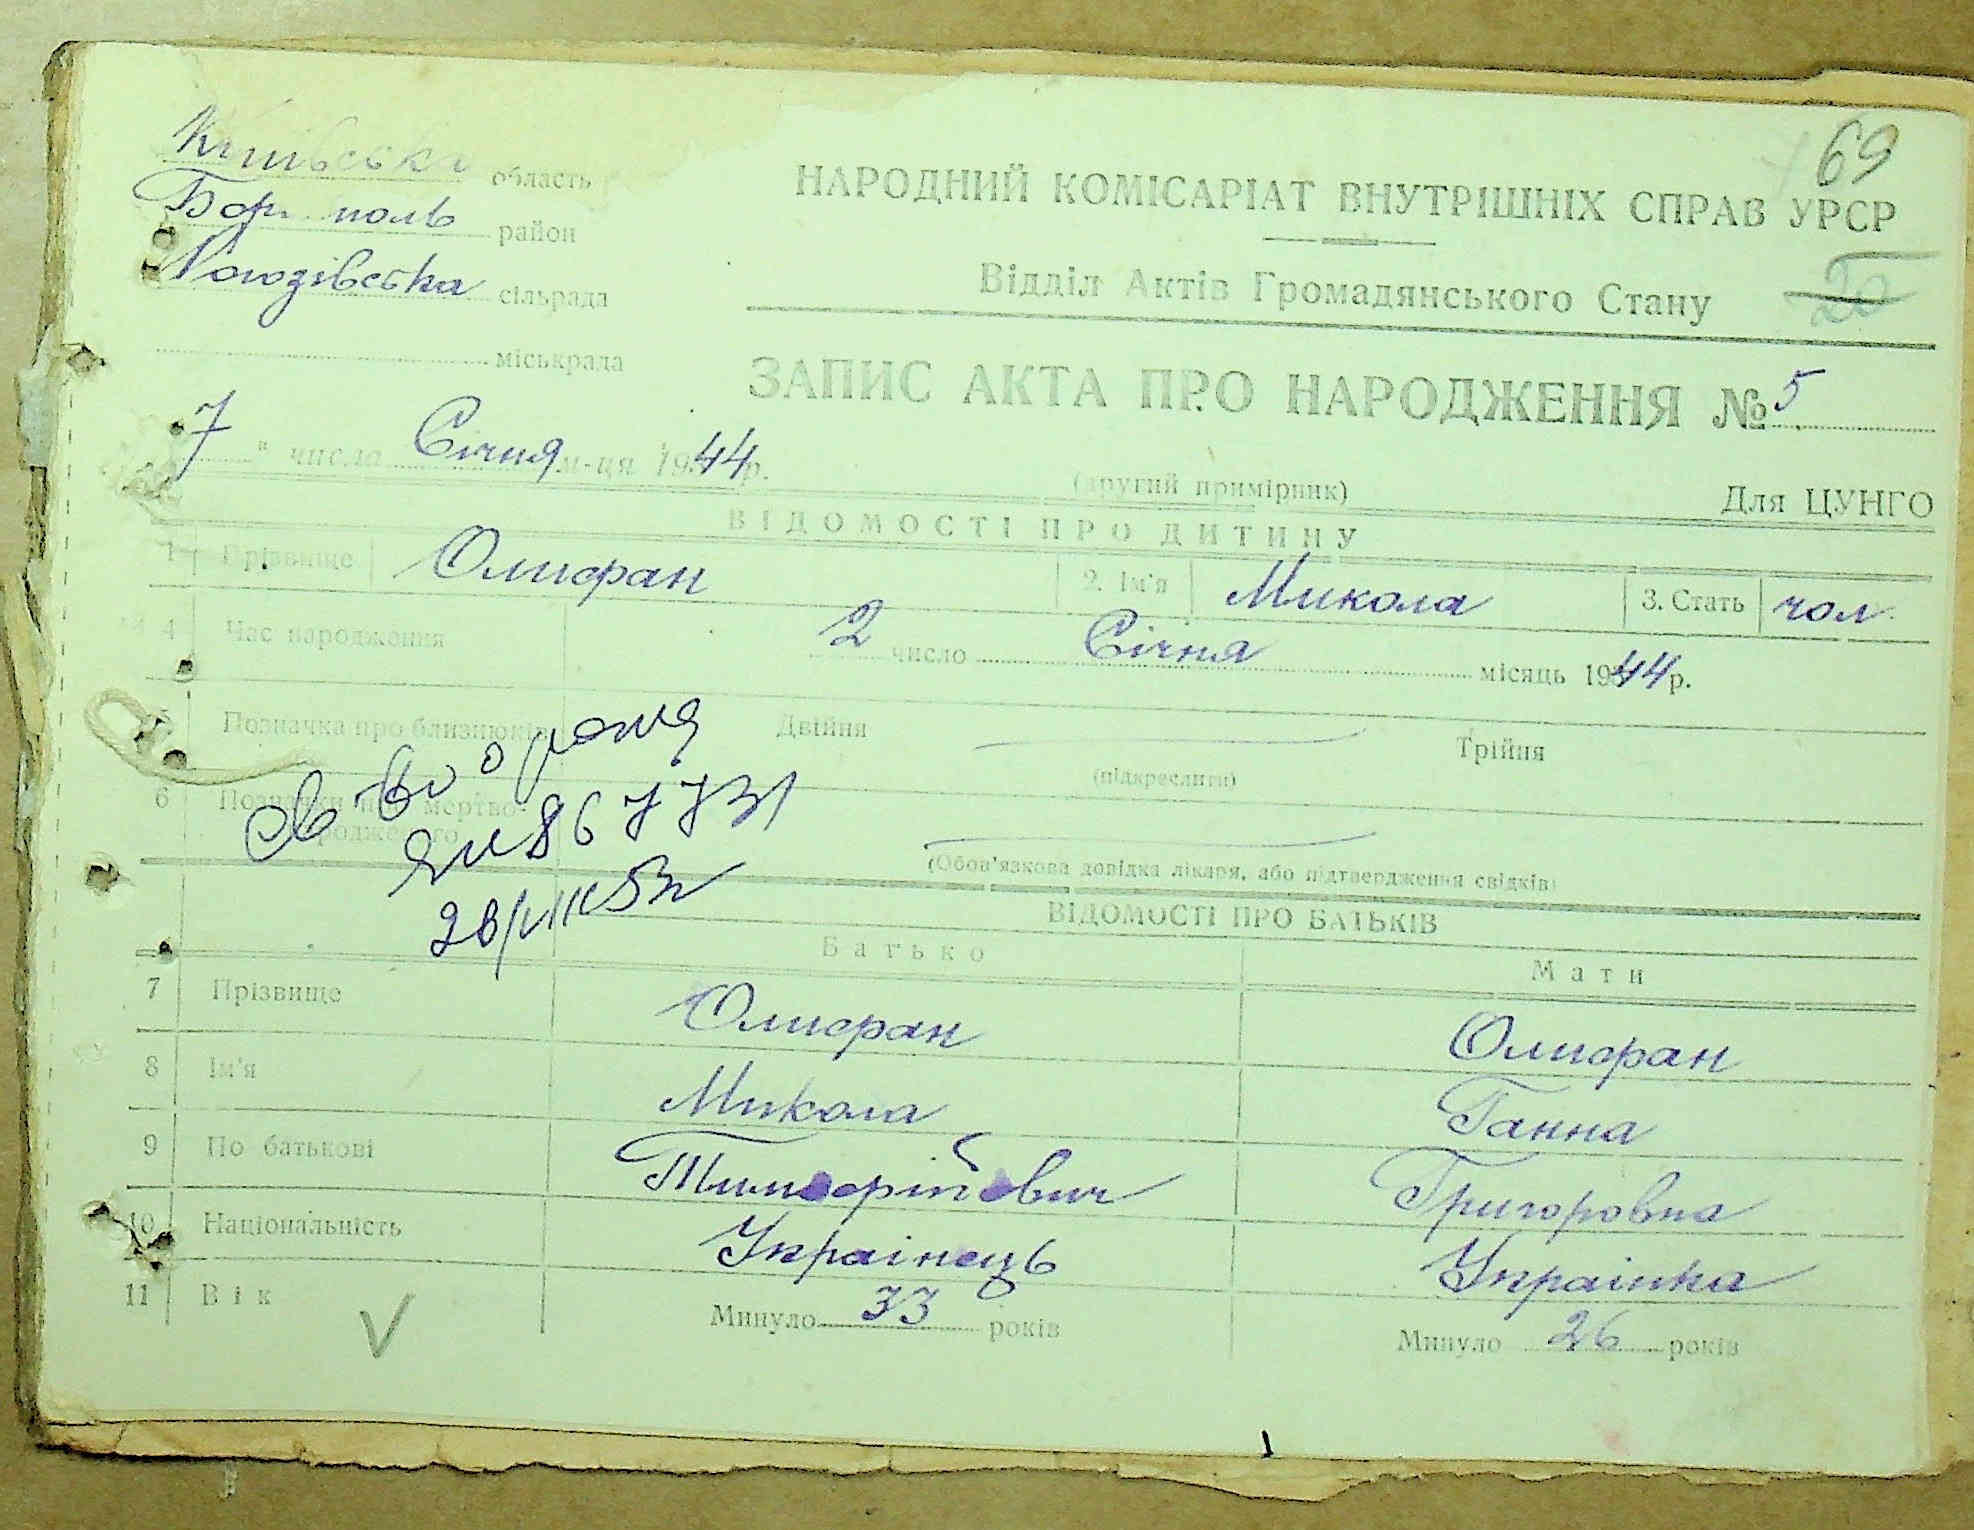 Київська область
69
Бориполь район
НАРОДНИЙ КОМІСАРІАТ ВНУТРІШНІХ СПРАВ УРСР
Рогозівська сільрада
Відділ Актів Громадянського Стану
20
міськрада
ЗАПИС АКТА ПРО НАРОДЖЕННЯ № 5
7 " числа Січня м-ця 1944 р.
(другий примірник)
Для ЦУНГО
ВІДОМОСТІ ПРО ДИТИНУ
1 Прізвище Олифран 2. Ім'я Микола 3. Стать чол.
4 Час народження 2 число Січня місяць 1944 р.
5 Позначка про близнюків Двійня Трійня
(підкреслити)
6 Позначки про мертво-
народженого
(Обов'язкова довідка лікаря, або підтвердження свідків)
св во о рожд
867731
28/VIII 53
ВІДОМОСТІ ПРО БАТЬКІВ
Батько Мати
7 Прізвище Олифран Олифран
8 Ім'я Микола Ганна
9 По батькові Тимофійович Григоровна
10 Національність Українець Українка
11 Вік Минуло 33 років Минуло 26 років